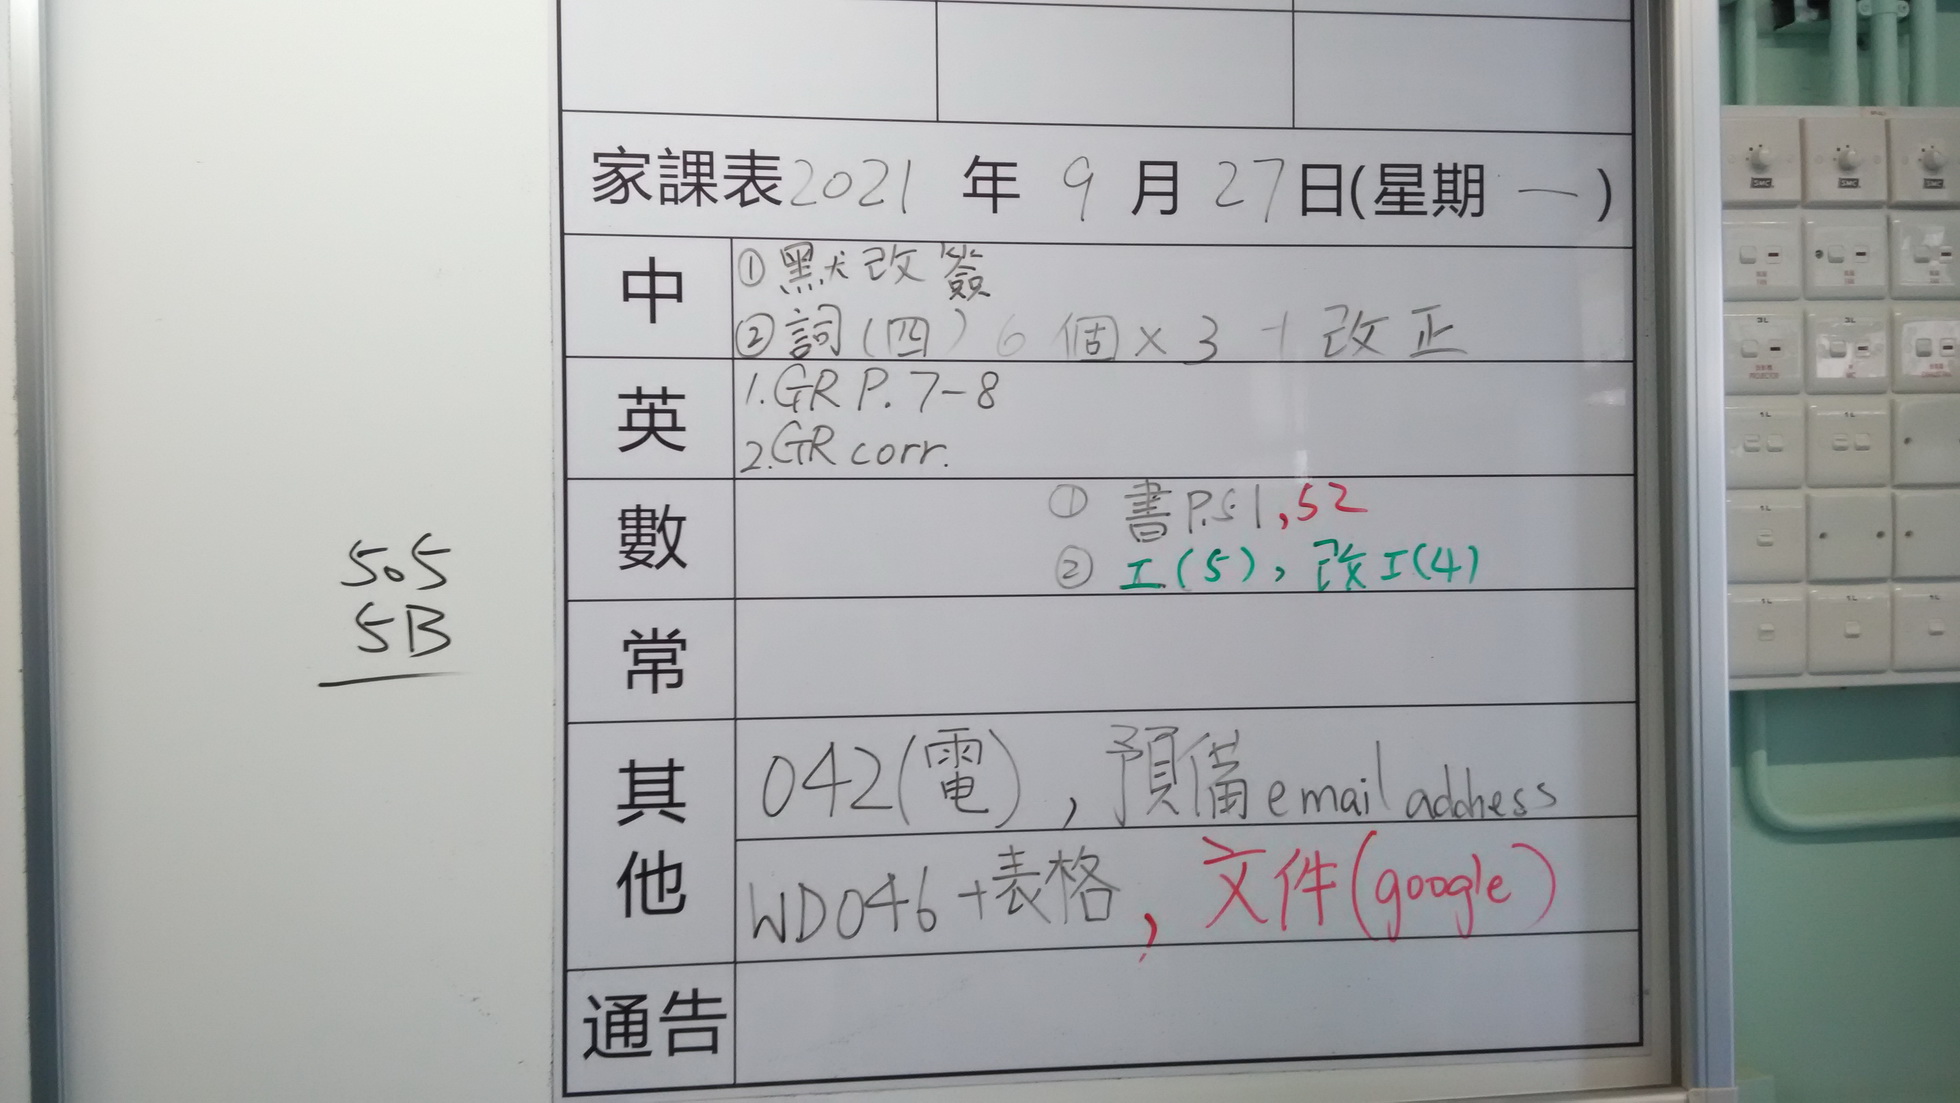 家課表2021 年 9 月 27日(星期 一)
中
①默改簽
②詞(四) 6個×3 + 改正
英
1.GR P.7-8
2.GR corr.
數
① 書P.51,52
② 工(5), 改工(4)
常
其他
042(電), 預備email address
WD046+表格, 文件(google)
通告
505
5B